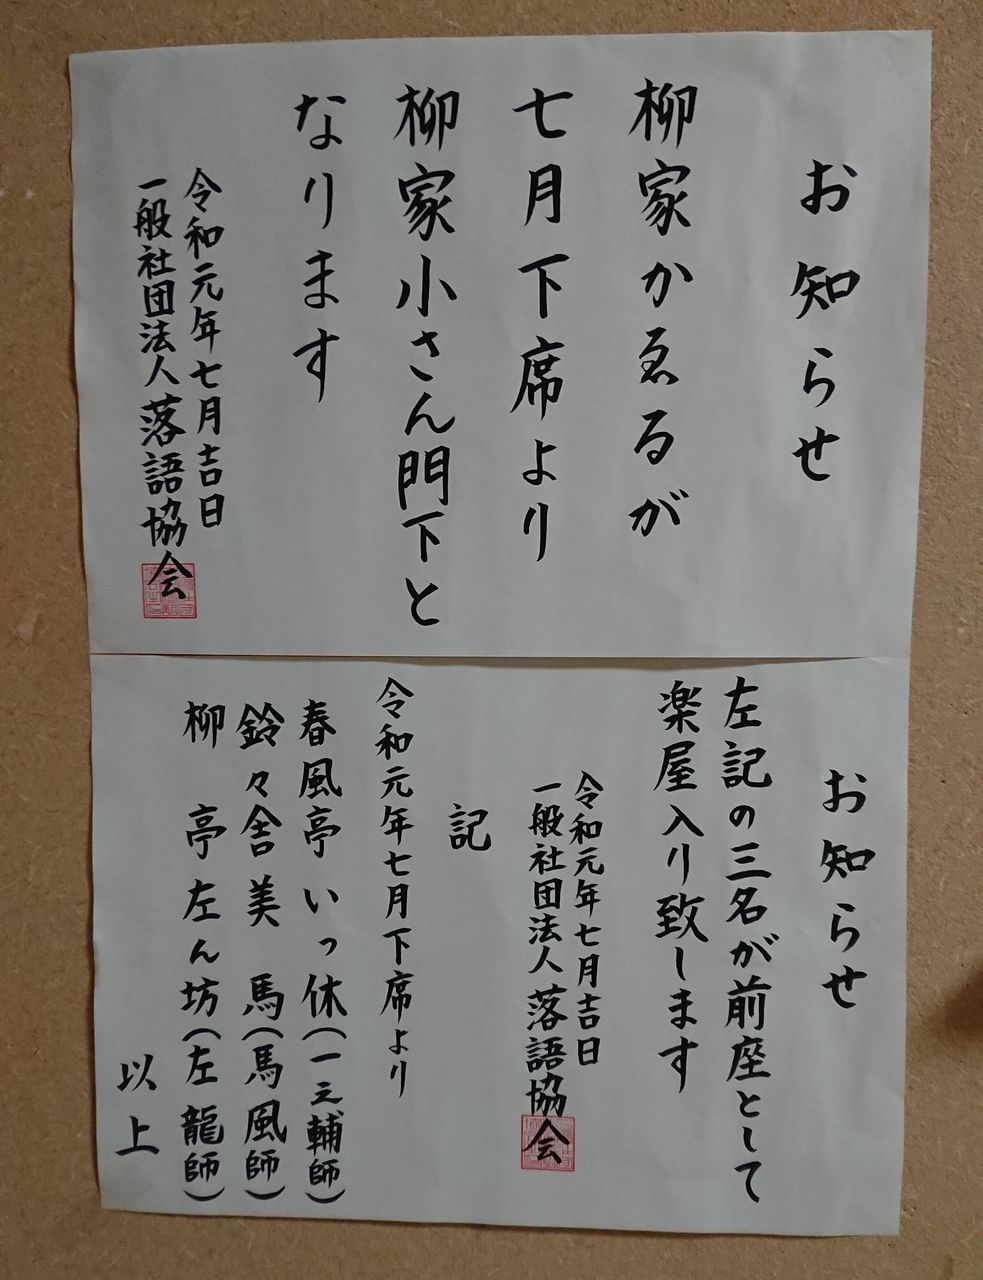 お知らせ
柳家かゑるが
七月下席より
柳家小さん門下と
なります
令和元年七月吉日
一般社団法人落語協会
お知らせ
左記の三名が前座として
楽屋入り致します
令和元年七月吉日
一般社団法人落語協会
記
令和元年七月下席より
春風亭いっ休(一之輔師)
鈴々舎美馬(馬風師)
柳亭左ん坊(左龍師)
以上